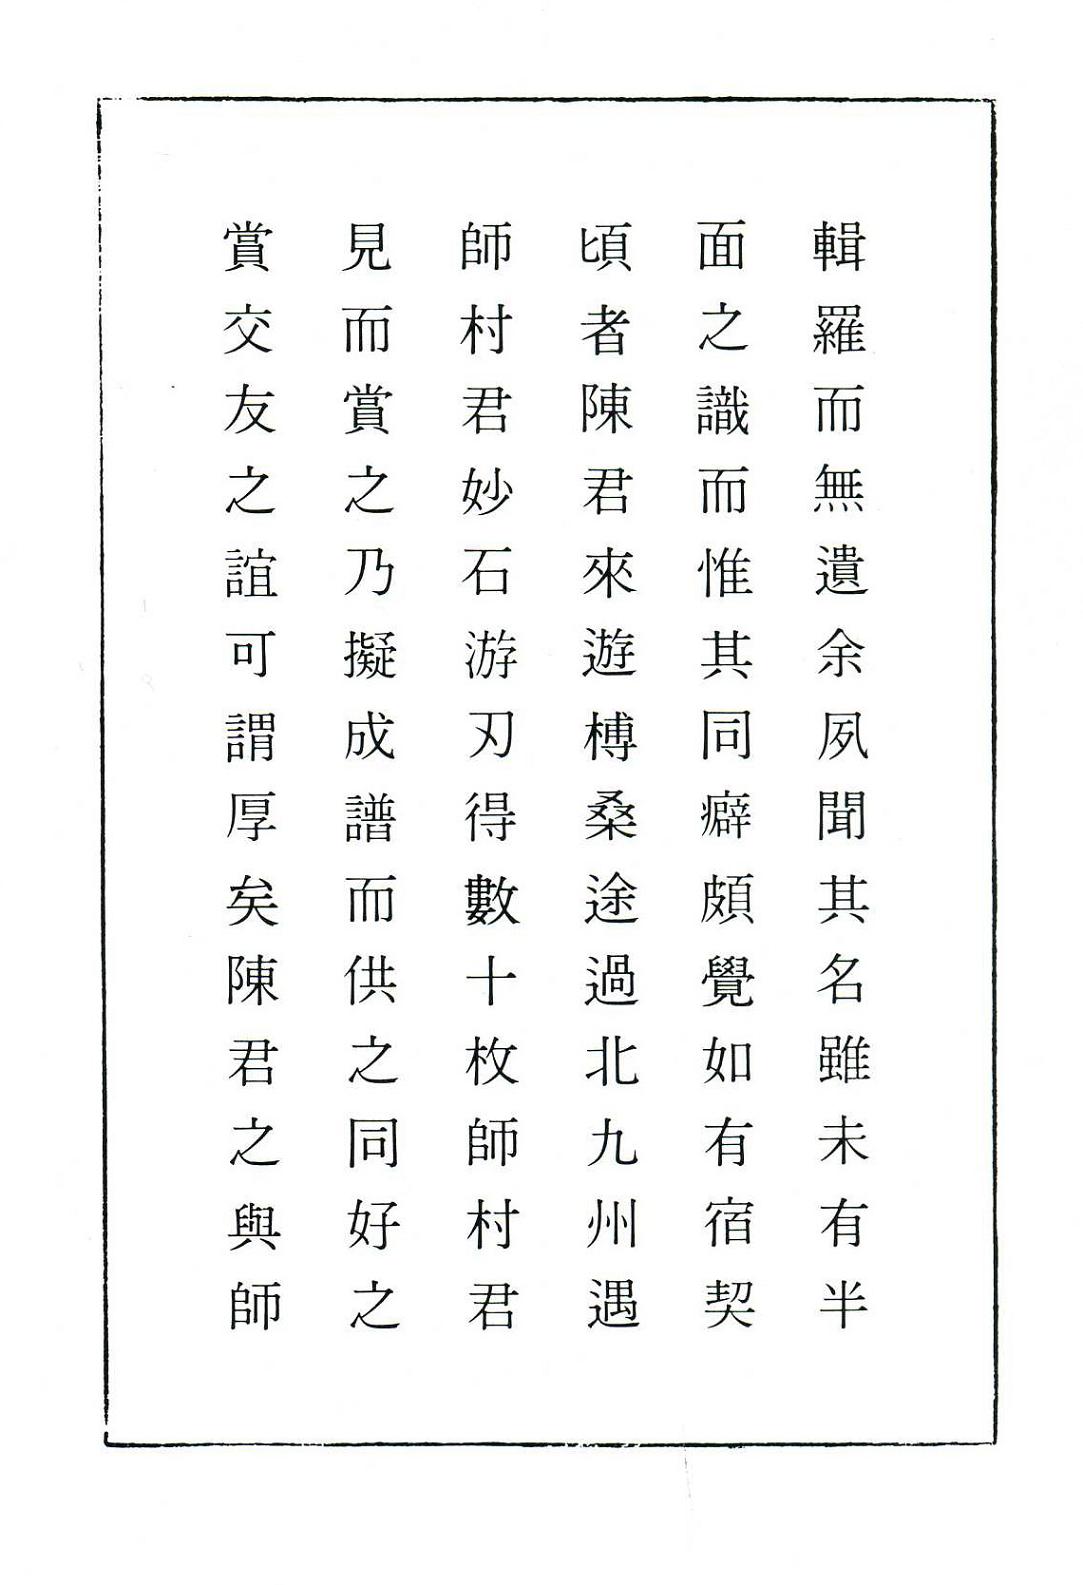 輯羅而無遺余夙聞其名雖未有半
面之識而惟其同癖頗覺如有宿契
頃者陳君來遊榑桑途過北九州遇
師村君妙石游刃得數十枚師村君
見而賞之乃擬成譜而供之同好之
賞交友之誼可謂厚矣陳君之與師